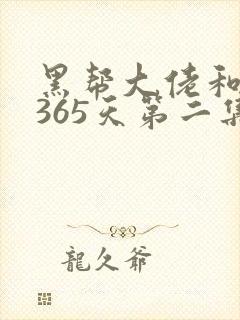 黑帮大佬和
365天第二集
龍久爺